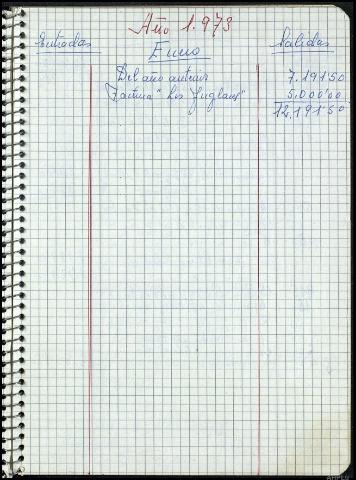 Año 1.973
Entradas Enero Salidas
Del año anterior 7.191'50
Factura "Los Juglares" 5.000'00
12.191'50